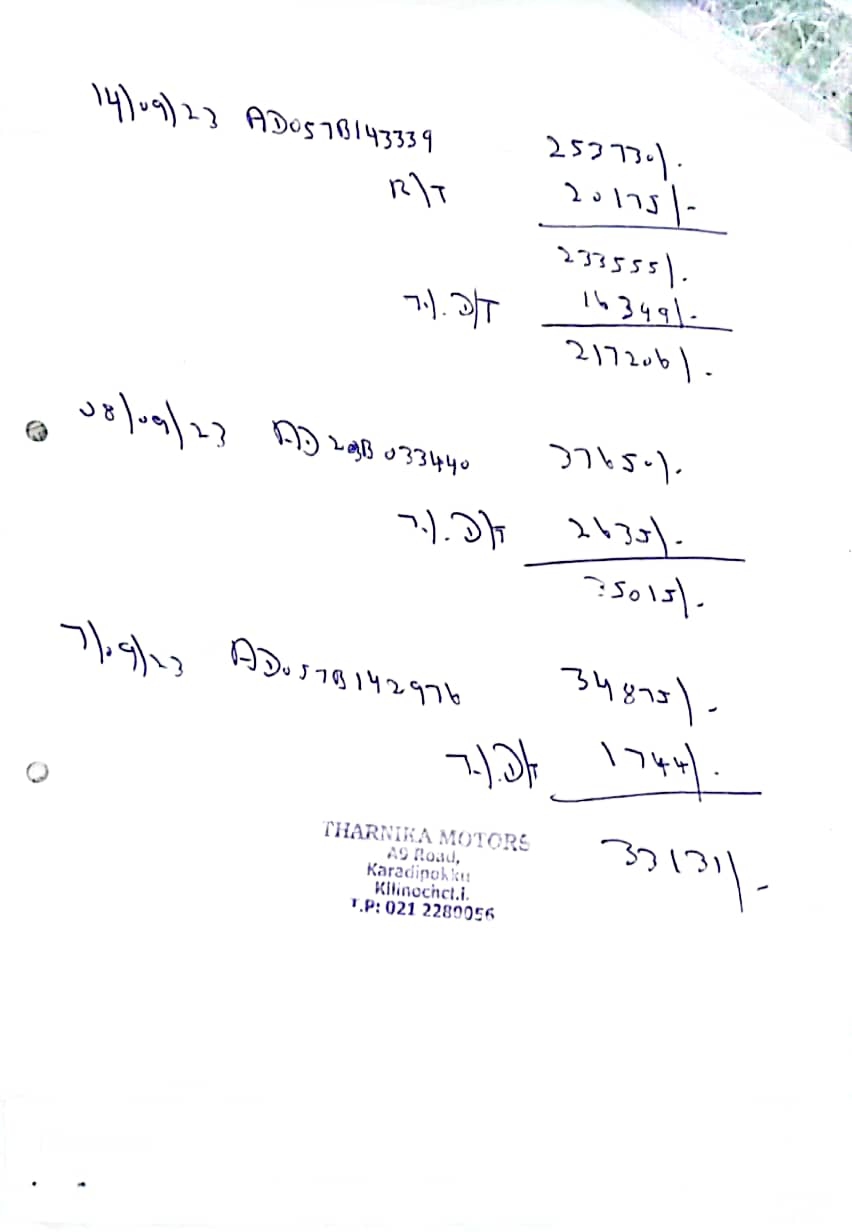 14/09/23 AD057B143339 253730/-
R/T 20175/-
233555/-
7% D/T 16349/-
217206/-
08/09/23 AD203B033440 37650/-
7% D/T 2635/-
35015/-
7/09/23 AD057B142976 34875/-
7% D/T 1744/-
33131/-
THARNIKA MOTORS
A9 Road,
Karadipokku
Kilinochchi.
T.P: 021 2280056